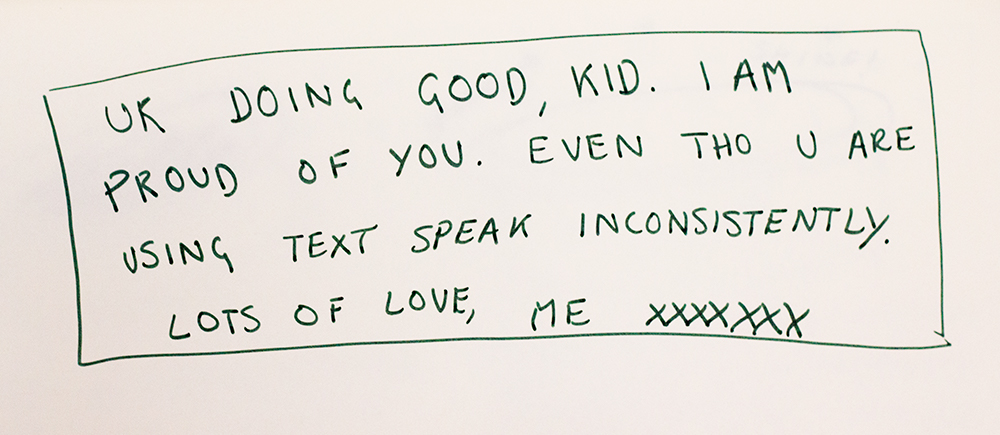 UK DOING GOOD, KID. I AM
PROUD OF YOU. EVEN THO U ARE
USING TEXT SPEAK INCONSISTENTLY.
LOTS OF LOVE, ME XXXXXXX